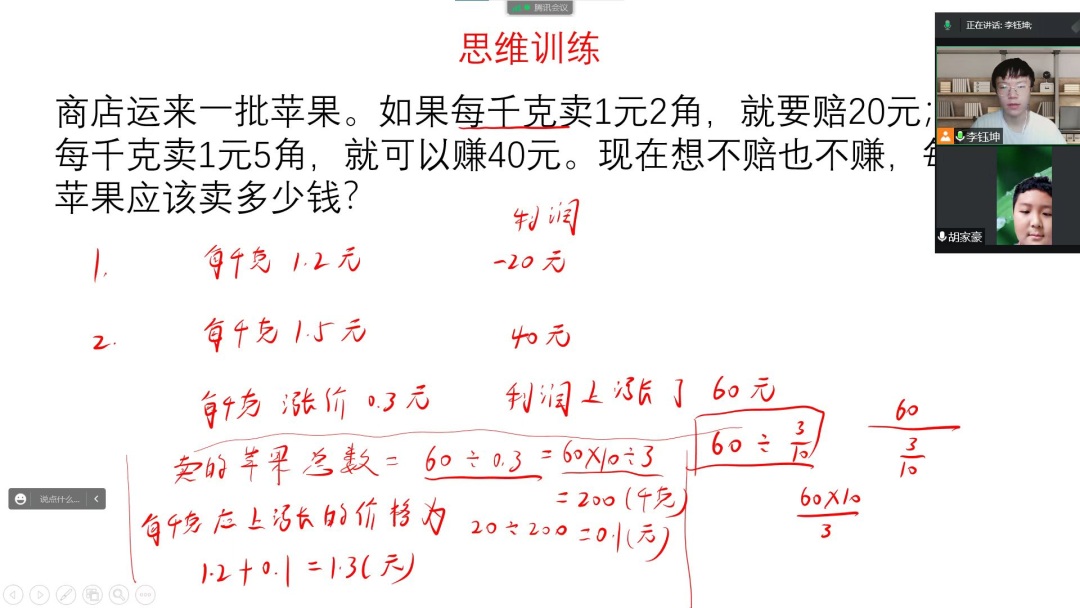 腾讯会议
正在讲话: 李钰坤;
思维训练
商店运来一批苹果。如果每千克卖1元2角，就要赔20元；
每千克卖1元5角，就可以赚40元。现在想不赔也不赚，
苹果应该卖多少钱？
李钰坤
胡家豪
利润
1. 每千克 1.2元 -20元
2. 每千克 1.5元 40元
每千克 涨价 0.3元 利润上涨了 60元
卖的苹果总数= 60÷0.3 = 60X10÷3
=200(千克)
60 ÷ 3/10
60
3/10
60X10
3
每千克应上涨的价格为 20÷200=0.1(元)
1.2+0.1=1.3(元)
说点什么...